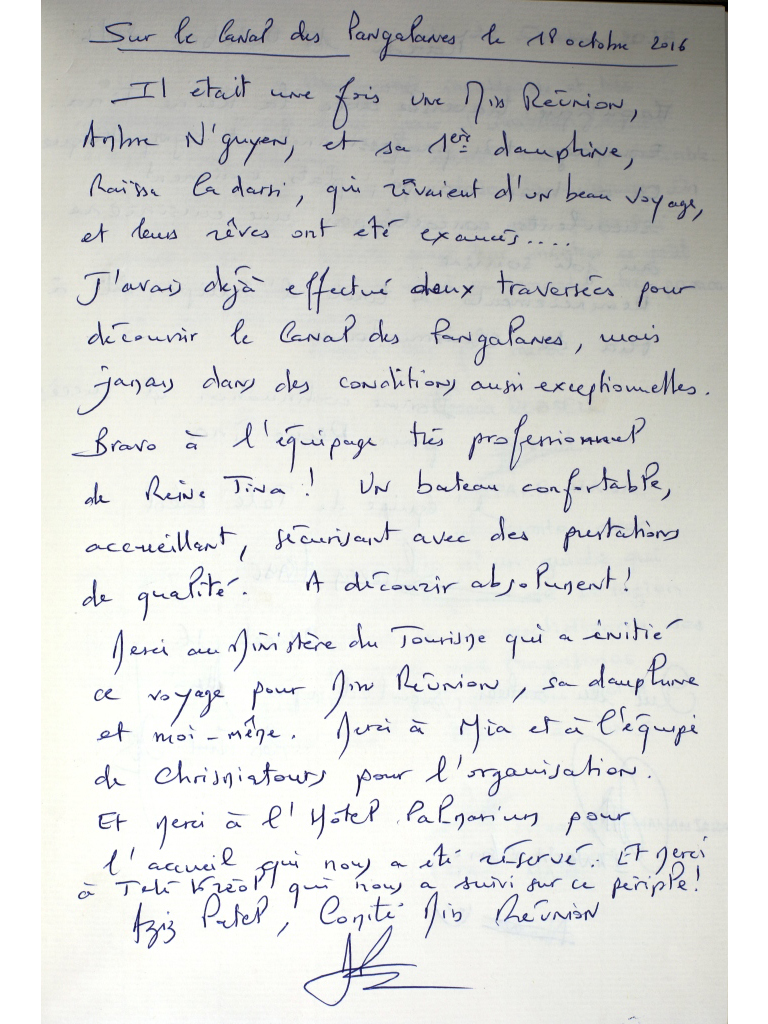 Sur le Canal des Pangalanes le 18 octobre 2016
Il était une fois une Miss Réunion,
Ambre N'guyen, et sa 1ère dauphine,
Raïssa la darsi, qui rêvaient d'un beau voyage,
et leurs rêves ont été exaucés....
J'avais dejà effectué deux traversées pour
découvrir le Canal des Pangalanes, mais
jamais dans des conditions aussi exceptionnelles.
Bravo à l'équipage très professionnel
de Reine Tina! Un bateau confortable,
accueillant, sécurisant avec des prestations
de qualité. A découvrir absolument!
Merci au Ministère du Tourisme qui a initié
ce voyage pour Miss Réunion, sa dauphine
et moi-même. Merci à Mia et à l'équipe
de Chrismiatours pour l'organisation.
Et merci à l'Hôtel Palmarium pour
l'accueil qui nous a été réservé. Et merci
à Télé Kréol qui nous a suivi sur ce périple!
Aziz Patel, Comité Miss Réunion